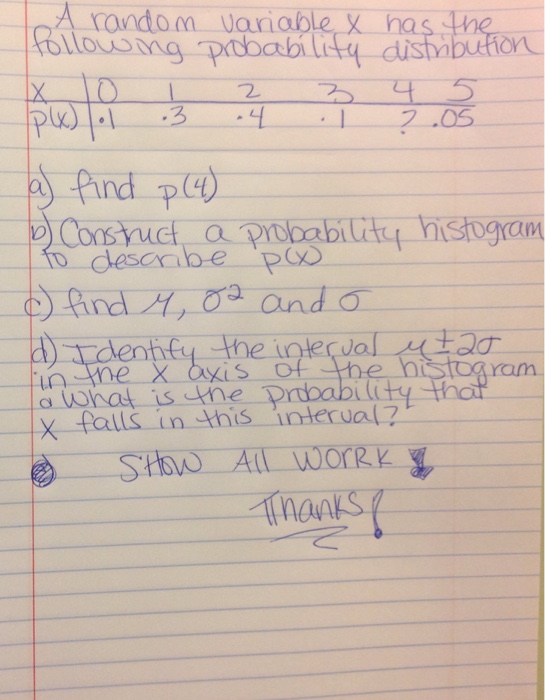 A random variable x has the
following probability distribution
x | 0 1 2 3 4 5
p(x) | .1 .3 .4 .1 ? .05
a) find p(4)
b) Construct a probability histogram
to describe p(x)
c) find μ, σ² and σ
d) Identify the interval μ ± 2σ
in the x axis of the histogram
• What is the probability that
x falls in this interval?
SHOW All WORRK !
Thanks!